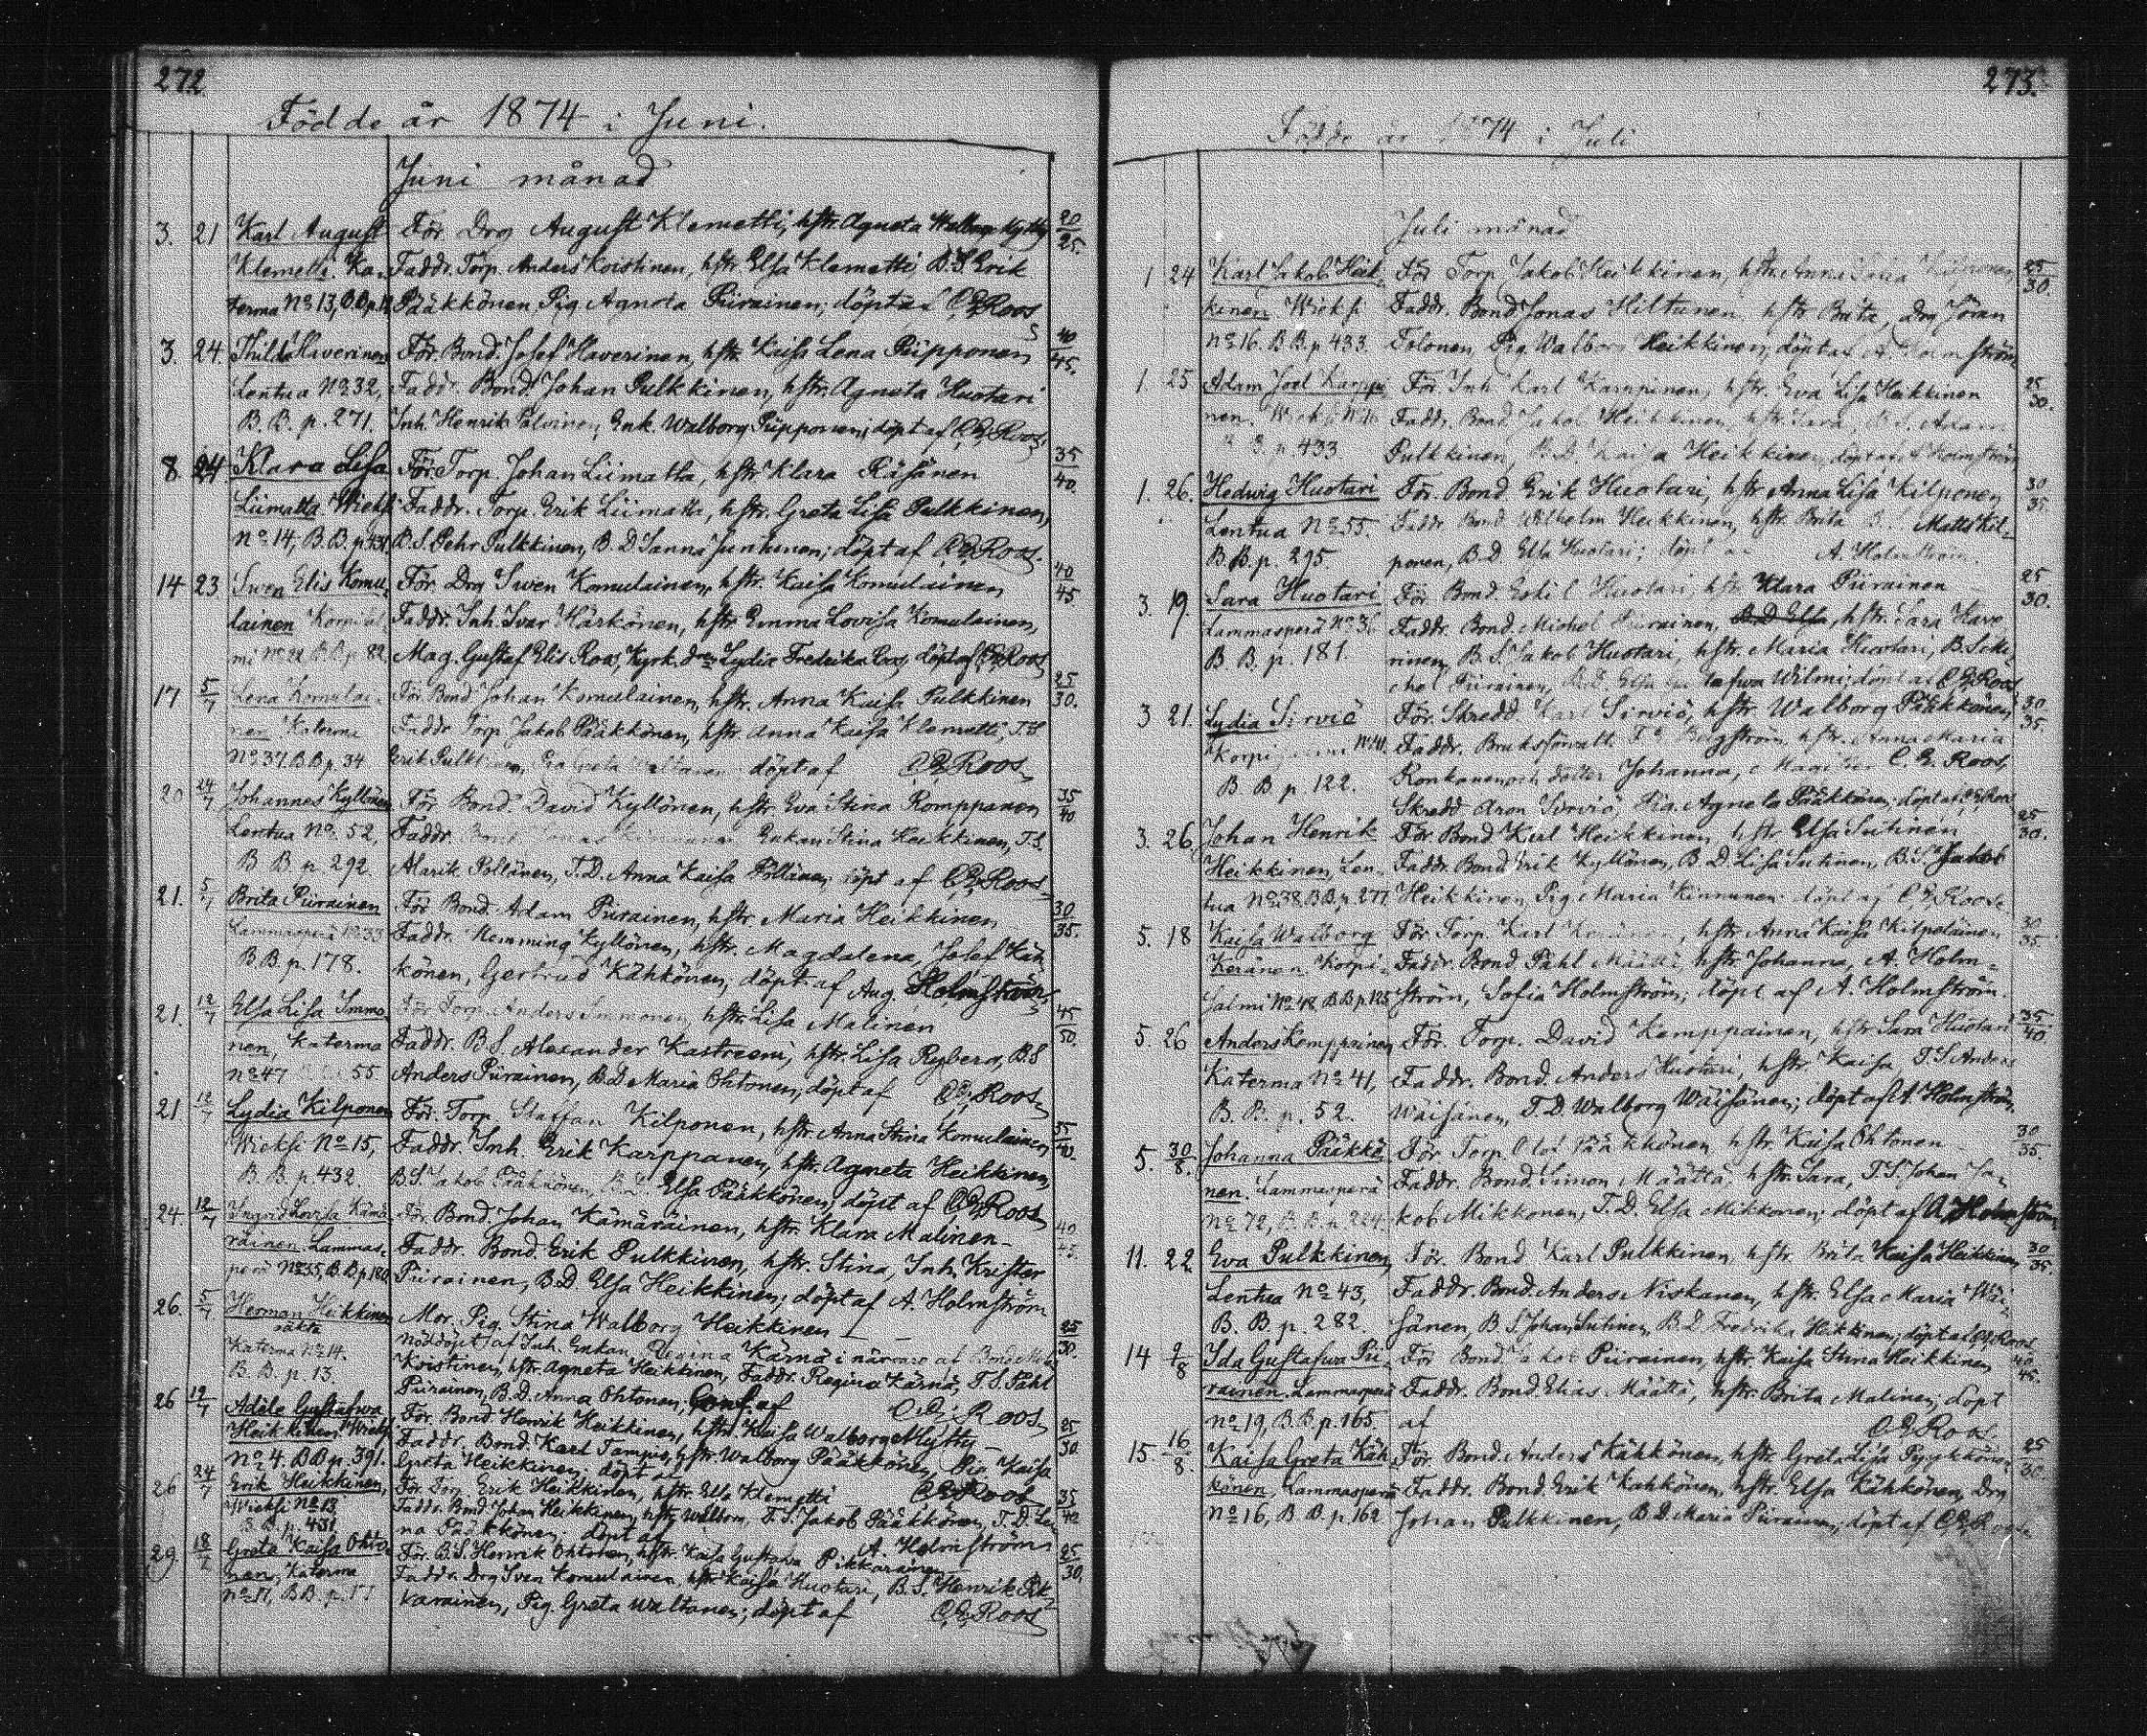 272
Födde år 1874 i Juni.
Juni månad
3. 21 Karl August För. Drg August Klemetti, hstr. Agneta Walborg Kytty 20/25.
Klemetti. Ka- Faddr. Torp. Anders Koistinen, hstr. Elsa Klemetti, B.S. Erik
terma No 13, B.B.p. Pääkkönen, Pig. Agneta Piirainen; döpt af C.E. Roos
3. 24. Thilda Haverinen För. Bond. Josef Haverinen, hstr. Kaisa Lena Piipponen 40/45.
Lentua No 32, Faddr. Bond. Johan Pulkkinen, hstr. Agneta Huotari
B. B. p. 271. Inh. Henrik Polvinen, Enk. Walborg Piipponen; döpt af C.E. Roos.
8 24 Klara Lisa För. Torp. Johan Liimatta, hstr. Klara Räsänen 35/40.
Liimatta Wieksi Faddr. Torp. Erik Liimatta, hstr. Greta Lisa Pulkkinen,
No 14, B.B. p. 431. B.S. Pehr Pulkkinen, B.D. Sanna Juntunen; döpt af C.E. Roos.
14 23 Swen Elis Komu- För. Drg Swen Komulainen, hstr. Kaisa Komulainen 40/45
lainen Korpisal- Faddr. Inh. Ivar Härkönen, hstr. Emma Lovisa Komulainen,
mi No 22 B.B.p. 82. Mag. Gustaf Elis Roos, Kyrk. Lydia Fredrika Roos, döpt af C.E. Roos
17 5/7 Lena Komulai- För. Bond. Johan Komulainen, hstr. Anna Kaisa Pulkkinen 25/30.
nen Katerma Faddr. Torp. Jakob Pääkkönen, hstr. Anna Kaisa Klemetti, T.S.
No 37, B.B.p. 34 Erik Pulkkinen, Greta Waltanen döpt af C.E. Roos
20 24/7 Johannes Kyllönen För. Bond. David Kyllönen, hstr. Eva Stina Romppanen 35/40
Lentua No. 52, Faddr. Bond. Jonas Enkan Stina Heikkinen, T.S.
B. B. p. 292. Marik Pöllänen, T.D. Anna Kaisa Pöllänen; döpt af C.E. Roos
21. 5/7 Brita Piirainen För. Bond. Adam Piirainen, hstr. Maria Heikkinen 30/35.
Lammasperä No 33 Faddr. Hemming Kyllönen, hstr. Magdalena, Josef Käh-
B.B. p. 178. könen, Gertrud Kähkönen; döpt af Aug. Holmström.
21. 12/7 Elsa Lisa Immo- För. Torp. Anders Immonen, hstr. Lisa Malinen 45/50.
nen, Katerma Faddr. B.S. Alexander Kastreeni, hstr. Lisa Ryberg, B.S.
No 47 55 Anders Piirainen, B.D. Maria Ohtonen, döpt af C.E. Roos
21 12/7 Lydia Kilponen För. Torp. Staffan Kilponen, hstr. Anna Stina Komulainen 35/40.
Wieksi No 15, Faddr. Inh. Erik Karppanen, hstr. Agneta Heikkinen,
B. B. p. 432. B.S. Jakob Pääkkönen, B.D. Elsa Pääkkönen, döpt af C.E. Roos
24. 12/7 Ingrid Lovisa Kämä- För. Bond. Johan Kämäräinen, hstr. Klara Malinen- 40/45.
räinen Lammas- Faddr. Bond. Erik Pulkkinen, hstr. Stina, Inh. Krister
perä No 35, B.B.p. 180. Piirainen, B.D. Elsa Heikkinen; döpt af A. Holmström
26. 5/7 Herman Heikkinen Mor. Pig. Stina Walborg Heikkinen 25/30.
oäkta nöddöpt af Inh. Enkan Regina Kärnä i närvaro af Bond.
Katerma No 14. Koistinen, hstr. Agneta Heikkinen, Faddr. Regina Kärnä, T.S. Påhl
B. B. p. 13. Piirainen, B.D. Anna Ohtonen, Conf. af C.E. Roos
26 12/7 Adéle Gustafwa För. Bond. Henrik Heikkinen, hstr. Kaisa Walborg Mytty 25/30
Heikkinen Wieksi Faddr. Bond. Karl Tampio, hstr. Walborg Pääkkönen, Pig. Kaisa
No 4. B.B.p. 391. Greta Heikkinen; döpt af C.E. Roos
26 24/7 Erik Heikkinen, För. Torp. Erik Heikkinen, hstr. Elsa Klemetti 35/40
Wieksi No 13 Faddr. Bond. Johan Heikkinen, hstr. Walborg, T.S. Jakob Pääkkönen, T.D. Lee-
B. B. p. 431. na Pääkkönen; döpt af A. Holmström
29. 18/7 Greta Kaisa Ohto- För. B.S. Henrik Ohtonen, hstr. Kaisa Gustafwa Pikkarainen 25/30.
nen, Katerma Faddr. Drg Sven Komulainen, hstr. Kaisa Huotari, B.S. Henrik Pik-
No 17, B.B. p. 17 karainen, Pig. Greta Waltanen; döpt af C.E. Roos
273.
Födde år 1874 i Juli
Juli månad
1 24 Karl Jakob Heik- För Torp. Jakob Heikkinen, hstr. Anna 25/30.
kinen Wieksi Faddr. Bond. Jonas Hiltunen hstr. Brita, Drg Jöran
No 16. B.B. p. 433. Tolonen, Pig. Walborg Heikkinen; döpt af A. Holmström
1. 25 Adam Joel Karppi- För. Inh. Karl Karppinen, hstr. Eva Lisa Heikkinen 25/30.
nen. Wieksi No 16 Faddr. Bond. Jakob Heikkinen, hstr. Sara, B.S. Adam
B. B. p. 433 Pulkkinen, B.D. Kaisa Heikkinen, döpt af A. Holmström
1. 26. Hedwig Huotari För. Bond. Erik Huotari, hstr. Anna Lisa Kilponen 30/35.
Lentua No 55. Faddr. Bond. Wilhelm Heikkinen, hstr. Brita B.S. Matts Kil-
B. B. p. 295. ponen, B.D. Elsa Huotari; döpt af A. Holmström.
3. 19. Sara Huotari För. Bond. Eskil Huotari, hstr. Klara Piirainen 25/30.
Lammasperä No 36 Faddr. Bond. Michel Piirainen, B.D. Elsa, hstr. Sara Have-
B. B. p. 181. rinen, B.S. Jakob Huotari, hstr. Maria Huotari, B.S. Mi-
chel Piirainen, B.D. Elsa Gustafwa Wilmi; döpt af C.E. Roos
3 21. Lydia Sirviö För. Skredd. Karl Sirviö, hstr. Walborg Pääkkönen 30/35.
Korpisalmi No 41. Faddr. Bruksförvalt. Bergström, hstr. Anna Maria
B B p. 122. Ronkanen och dotter Johanna, Magister C. E. Roos,
Skredd. Aron Sirviö, Pig. Agneta Pääkkönen; döpt af C.E. Roos
3. 26. Johan Henrik För. Bond. Karl Heikkinen, hstr. Elsa Sutinen 25/30.
Heikkinen, Len- Faddr. Bond. Erik Kyllönen, B.D. Lisa Sutinen, B.S. Jakob
tua No 38 B.B.p. 277. Heikkinen, Pig. Maria Kinnunen; döpt af C.E. Roos.
5. 18 Kaisa Walborg För. Torp. Karl Keränen, hstr. Anna Kaisa Kilpeläinen 30/35
Keränen Korpi- Faddr. Bond. Påhl Määttä, hstr. Johanna, A. Holm-
salmi No 48 B.B.p. 125 ström, Sofia Holmström; döpt af A. Holmström.
5. 26 Anders Kemppainen För. Torp. David Kemppainen, hstr. Sara Huotari 35/40.
Katerma No 41, Faddr. Bond. Anders Huotari, hstr. Kaisa, T.S. Anders
B. B. p. 52. Wäisänen, T.D. Walborg Wäisänen; döpt af A. Holmström
5. 30/8. Johanna Pääkkö- För Torp. Olof Pääkkönen hstr. Kaisa Ohtonen 30/35.
nen. Lammasperä Faddr. Bond. Simon Määttä, hstr. Sara, T.S. Johan Ja-
No 72, B.B. p. 224. kob Mikkonen, T.D. Elsa Mikkonen; döpt af A. Holmström
11. 22 Ewa Pulkkinen, För. Bond. Karl Pulkkinen, hstr. Brita Kaisa Heikkinen 30/35.
Lentua No 43, Faddr. Bond. Anders Niskanen, hstr. Elsa Maria Wäi-
B. B p. 282. sänen, B.S. Johan Sutinen, B.D. Fredrika Heikkinen; döpt af C.E. Roos
14 9/8 Ida Gustafwa Pii- För Bond. Jakob Piirainen, hstr. Kaisa Stina Heikkinen 40/45.
rainen. Lammasperä Faddr. Bond. Elias Määttä, hstr. Brita Malinen; döpt
No 19, B.B p. 165. af C.E. Roos
15. 16/8. Kaisa Greta Käh- För. Bond. Anders Kähkönen, hstr. Greta Lisa Pyykkönen 25/30.
könen, Lammasperä Faddr. Bond. Erik Kähkönen, hstr. Elsa Kähkönen, Drg
No 16, B. B. p. 162 Johan Pulkkinen, B.D. Maria Piirainen; döpt af C.E. Roos